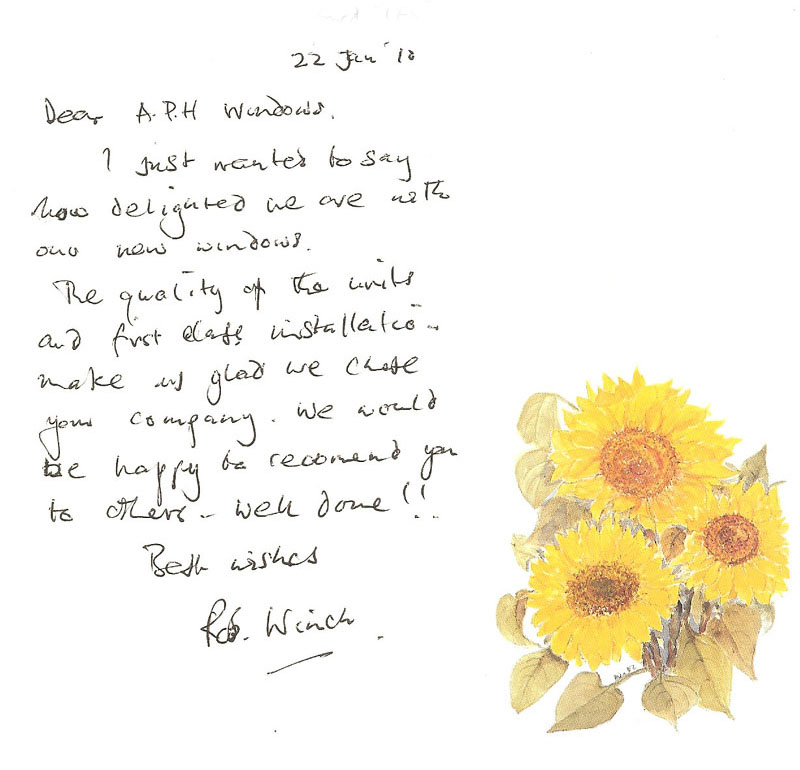 22 Jan '10
Dear A.P.H Windows.
I just wanted to say
how delighted we are with
our new windows.
The quality of the units
and first class installation
make us glad we chose
your company. We would
be happy to recomend you
to others - Well done!!
Best wishes
Rob. Winch